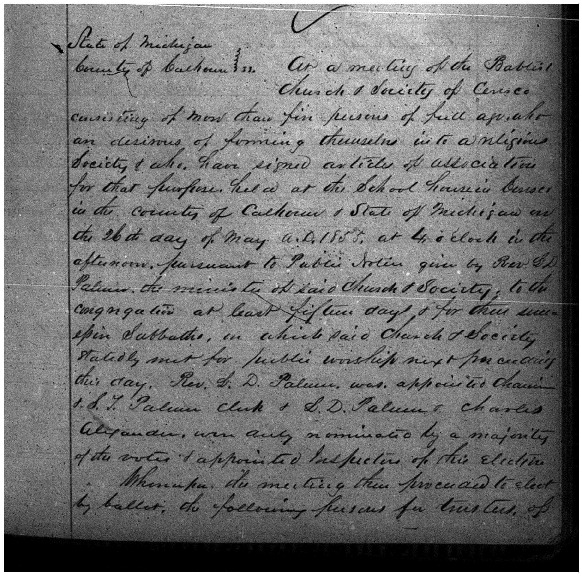 State of Michigan
County of Calhoun } ss. At a meeting of the Baptist
Church & Society of Ceresco
consisting of more than five persons of full age, who
are desirous of forming themselves into a religious
Society & who have signed articles of association
for that purpose held at the School house in Ceresco
in the county of Calhoun & State of Michigan on
the 26th day of May A.D. at 4 o'clock in the
afternoon, pursuant to Public Notice given by Rev. D.
Palmer, the minister of said Church & Society, to the
congregation at least fifteen days & for three succes-
Sabbaths, on which said Church & Society
statedly met for public worship next preceding
this day. Rev. S. D. Palmer, was appointed
& S. T. Palmer Clerk & S. D. Palmer & Charles
Alexander, were duly nominated by a majority
of the votes & appointed Inspectors of this election
Whereupon the meeting then proceeded to elect
by ballot, the following persons for trustees, of